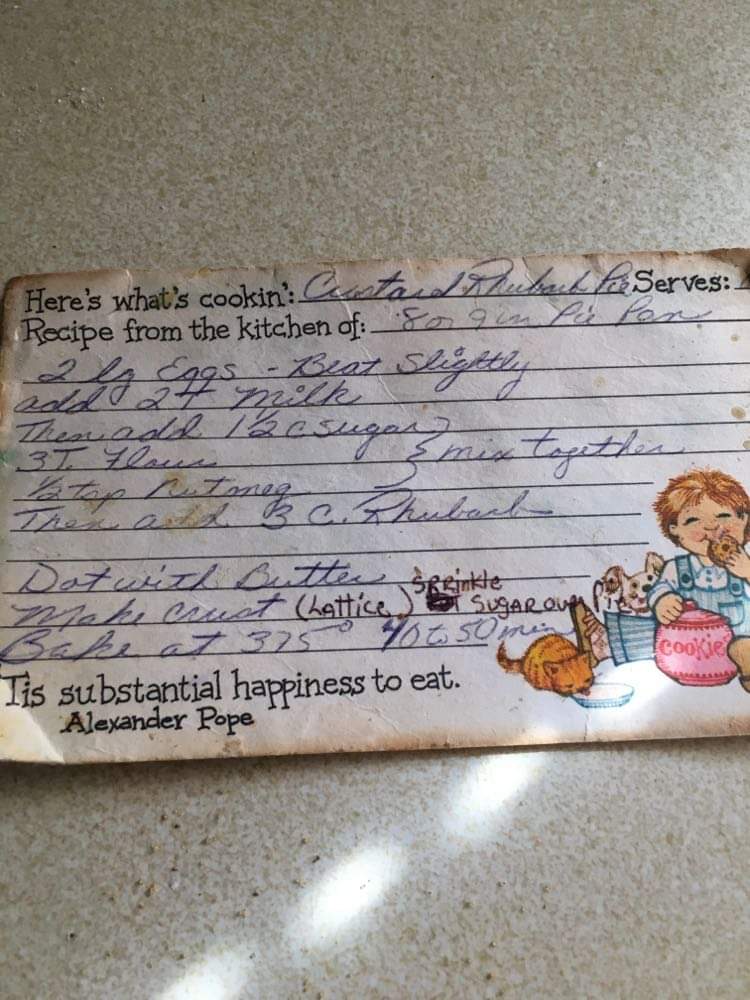 Here's what's cookin': Custard Rhubarb Pie Serves:
Recipe from the kitchen of: 8 or 9 in Pie Pan
2 lg Eggs - Beat Slightly
add 2T milk
Then add 1½ c sugar
3T. Flour } mix together
½ tsp Nutmeg
Then add 3 C. Rhubarb
Dot with Butter
Make crust (Lattice) Sprinkle
SUGAR over Pie
Bake at 375° 40 to 50 min
COOKIE
Tis substantial happiness to eat.
Alexander Pope